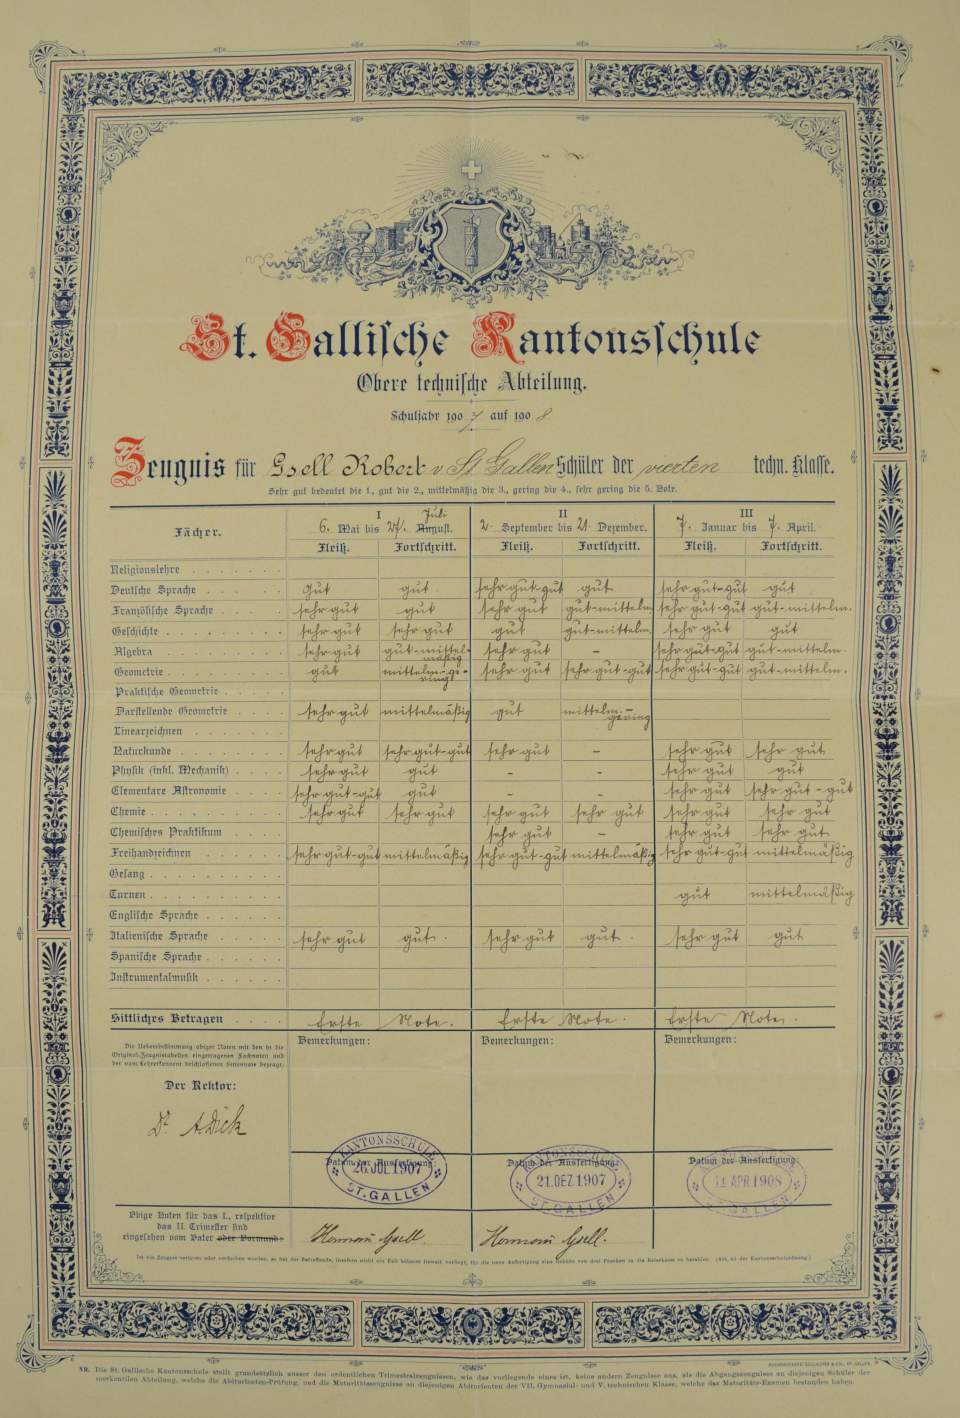 St. Gallische Kantonsschule
Obere technische Abteilung.
Schuljahr 1907 auf 1908
Zeugnis für Gsell Robert v. St. Gallen Schüler der vierten techn. Klasse.
Sehr gut bedeutet die 1., gut die 2., mittelmäßig die 3., gering die 4., sehr gering die 5. Note.
Fächer. I II III
6. Mai bis 27. August. Juli 2. September bis 21. Dezember. 7. Januar bis 7. April.
Fleiß. Fortschritt. Fleiß. Fortschritt. Fleiß. Fortschritt.
Religionslehre
Deutsche Sprache gut gut sehr gut-gut gut sehr gut-gut gut
Französische Sprache sehr gut gut sehr gut gut-mittelm. sehr gut-gut gut-mittelm.
Geschichte sehr gut sehr gut gut gut-mittelm. sehr gut gut
Algebra sehr gut gut-mittelmäßig sehr gut - sehr gut-gut gut-mittelm.
Geometrie gut mittelm.-gering sehr gut sehr gut-gut sehr gut-gut gut-mittelm.
Praktische Geometrie
Darstellende Geometrie sehr gut mittelmäßig gut mittelm.-gering
Linearzeichnen
Naturkunde sehr gut sehr gut-gut sehr gut - sehr gut sehr gut
Physik (inkl. Mechanik) sehr gut gut - - sehr gut gut
Elementare Astronomie sehr gut-gut gut - - sehr gut sehr gut-gut
Chemie sehr gut sehr gut sehr gut sehr gut sehr gut sehr gut
Chemisches Praktikum sehr gut - sehr gut sehr gut
Freihandzeichnen sehr gut-gut mittelmäßig sehr gut-gut mittelmäßig sehr gut-gut mittelmäßig
Gesang
Turnen gut mittelmäßig
Englische Sprache
Italienische Sprache sehr gut gut. sehr gut gut. sehr gut gut
Spanische Sprache
Instrumentalmusik
Sittliches Betragen Erste Note. Erste Note. Erste Note.
Die Uebereinstimmung obiger Noten mit den in die
Original-Zeugnistabellen eingetragenen Fachnoten und
der vom Lehrerkonvent beschlossenen Sittennote bezeugt:
Der Rektor:
Dr. A. Dick
Bemerkungen: Bemerkungen: Bemerkungen:
Datum der Ausfertigung: Datum der Ausfertigung: Datum der Ausfertigung:
KANTONSSCHULE KANTONSSCHULE KANTONSSCHULE
26. JUL 1907 21. DEZ. 1907 APR. 1908
ST. GALLEN ST. GALLEN ST. GALLEN
Obige Noten für das I., respektive
das II. Trimester sind
eingesehen vom Vater oder Vormund:
Hermann Gsell. Hermann Gsell.
NB. Die St. Gallische Kantonsschule stellt grundsätzlich ausser den ordentlichen Trimestralzeugnissen, wie das vorliegende eines ist, keine andern Zeugnisse aus, als die Abgangszeugnisse an diejenigen Schüler der
merkantilen Abteilung, welche die Abiturienten-Prüfung, und die Maturitätszeugnisse an diejenigen Abiturienten der VII. Gymnasial- und V. technischen Klasse, welche das Maturitäts-Examen bestanden haben.